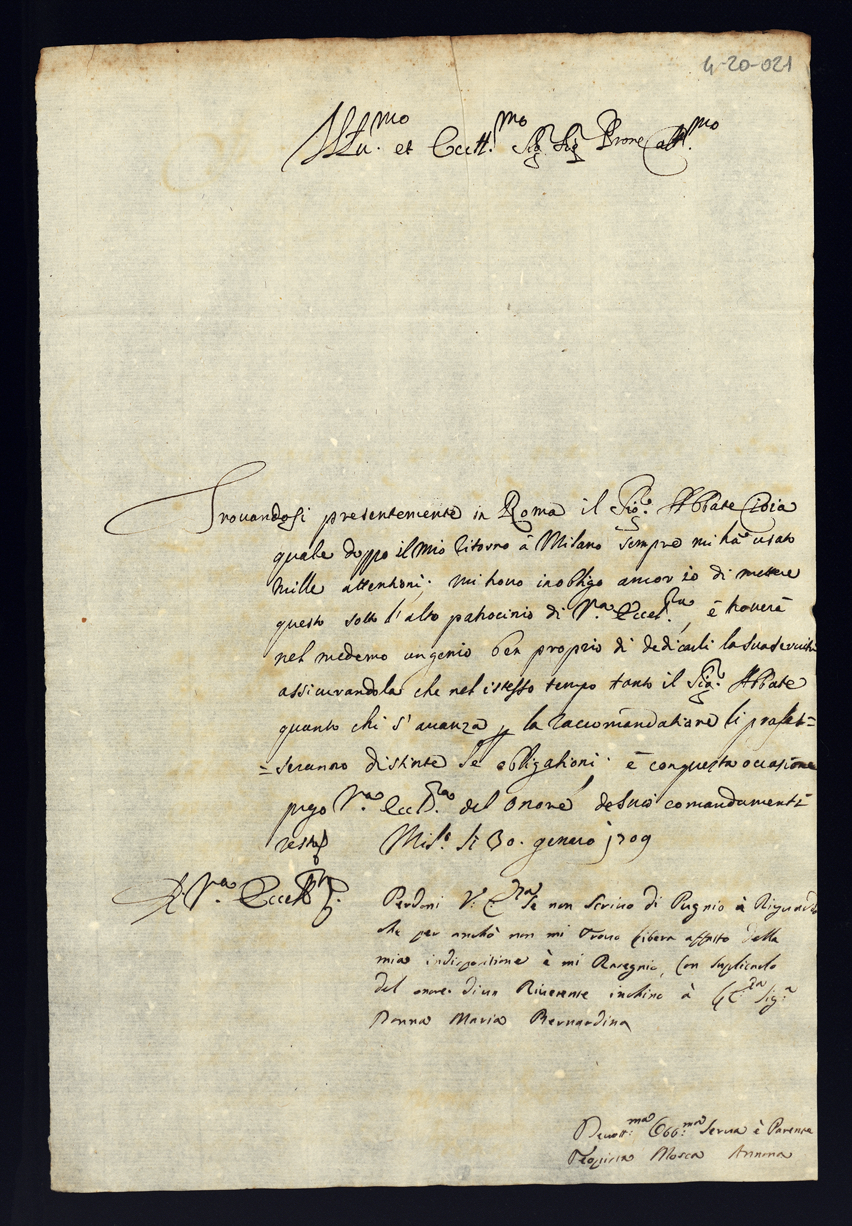 4-20-021
Illu.mo et Ecc.mo Sig. Sig. Prone Coll.mo
Trovandosi presentemente in Roma il Sig.re Abbate Cibia
quale doppo il mio ritorno à Milano sempre mi hà usato
mille attentioni; mi trovo in obligo ancor io di mettere
questo sotto l'alto patrocinio di V.ra Eccel.za, è troverà
nel medemo un genio ben proprio di dedicarli la sua servitù
assicurandola che nel istesso tempo tanto il Sig.re Abbate
quanto chi s'avanza la raccomandatione li profes=
=seranno distinte le obligationi. è con questa occasione
prego V.ra Ecc.za del onore de suoi comandamenti
resto Mil.o li 30. genaro 1709
Di V.ra Eccell.za
Perdoni V. E.za se non scrivo di Pugnio à
che per anchò non mi trovo libera affatto della
mia indispositione è mi Rasegnio, Con suplicarlo
del onore di un Riverente inchino à Sig.a
Donna Maria Bernardina
Devott.ma Obb.ma Serva è Parente
Teopista Mosca Annona